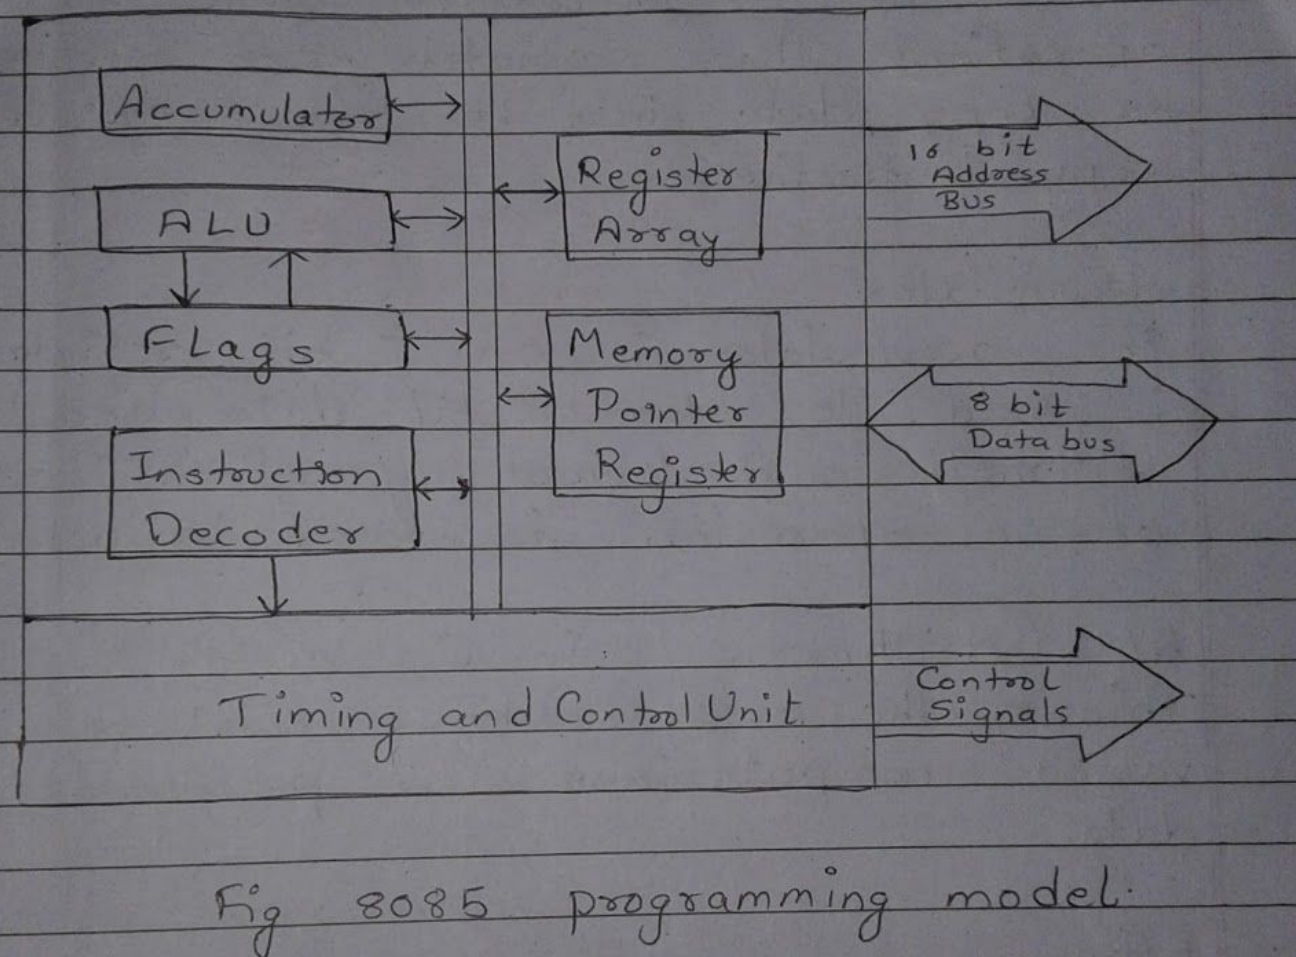 Accumulator
ALU
FLags
Instruction
Decoder
Register
Array
Memory
Pointer
Register
16 bit
Address
Bus
8 bit
Data bus
Timing and Control Unit
Control
Signals
Fig 8085 programming model.